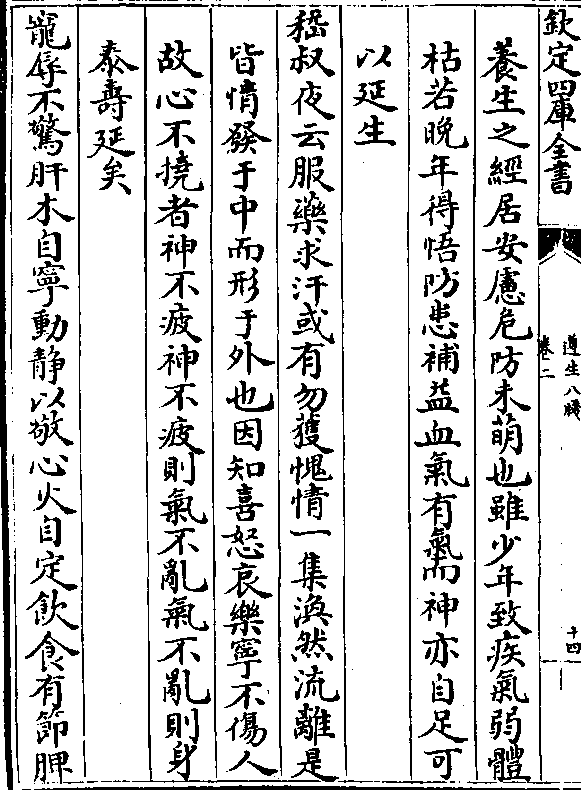 欽定四庫全書
遵生八牋
卷二
十四
養生之經居安慮危防未萌也雖少年致疾氣弱體
枯若晚年得悟防患補益血氣有氣而神亦自足可
以延生
嵇叔夜云服藥求汗或有勿獲愧情一集渙然流離是
皆情發于中而形于外也因知喜怒哀樂寧不傷人
故心不撓者神不疲神不疲則氣不亂氣不亂則身
泰壽延矣
寵辱不驚肝木自寧動靜以敬心火自定飲食有節脾